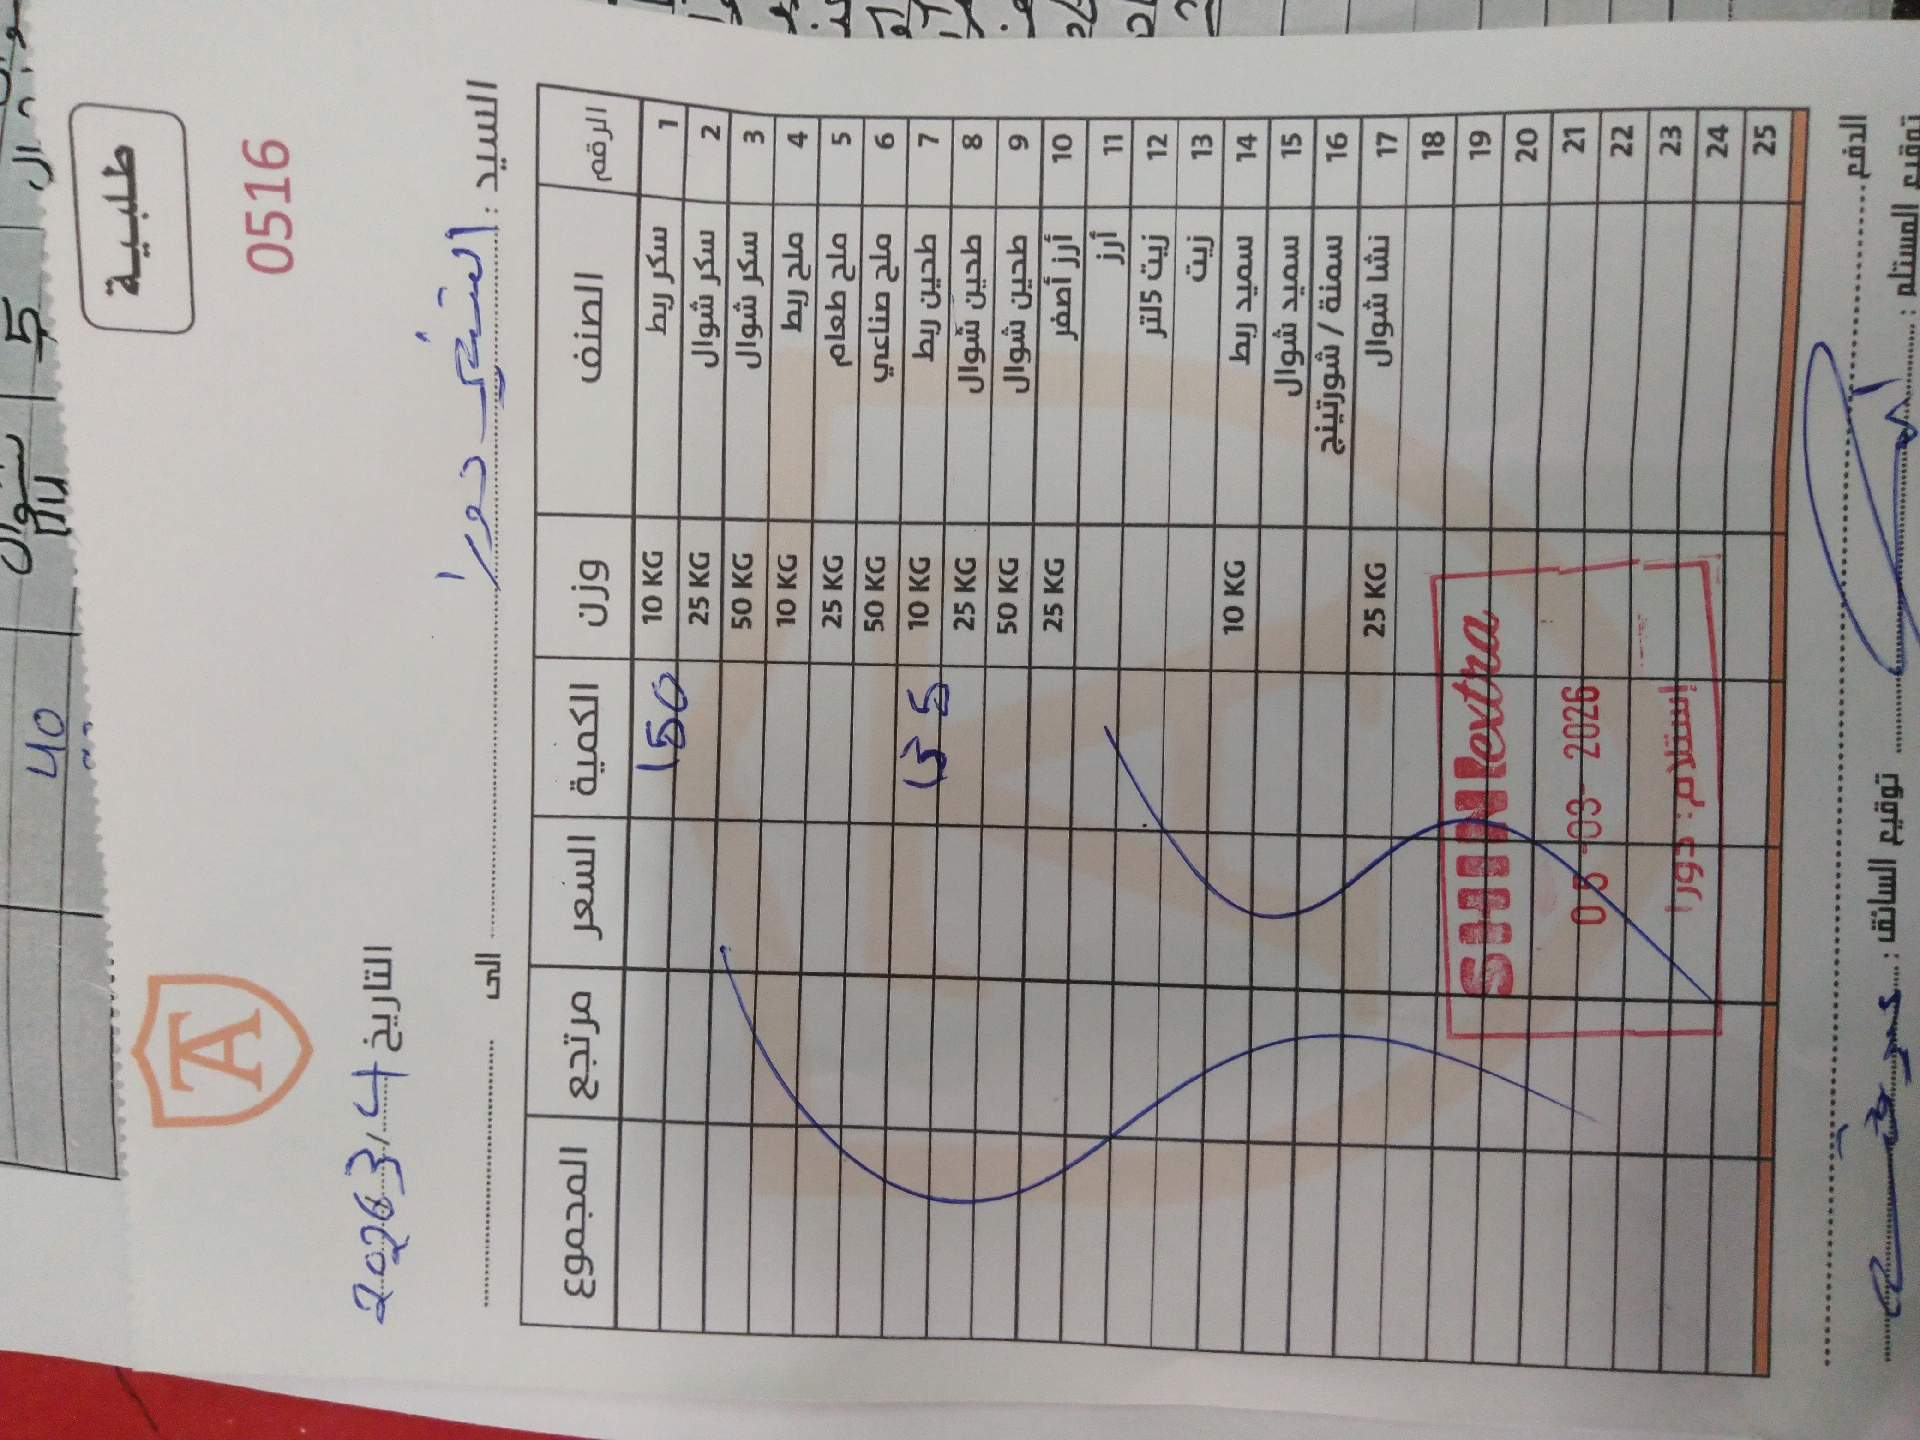 طلبية
0516
التاريخ 2026 3/4
السيد : الشني دورا
الى
الرقم الصنف وزن الكمية السعر مرتجع المجموع
1 سكر ربط 10 KG 150
2 سكر شوال 25 KG
3 سكر شوال 50 KG
4 ملح ربط 10 KG
5 ملح طعام 25 KG
6 ملح صناعي 50 KG
7 طحين ربط 10 KG 135
8 طحين شوال 25 KG
9 طحين شوال 50 KG
10 أرز أصفر 25 KG
11 أرز
12 زيت 5لتر
13 زيت
14 سميد ربط 10 KG
15 سميد شوال
16 سمنة / شورتينج
17 نشا شوال 25 KG
18
19
20
21
22
23
24
25
SHINI extra
05 -03- 2026
إستلام : دورا
الدفع
توقيع المستلم :
توقيع السائق :
شوال
5
40